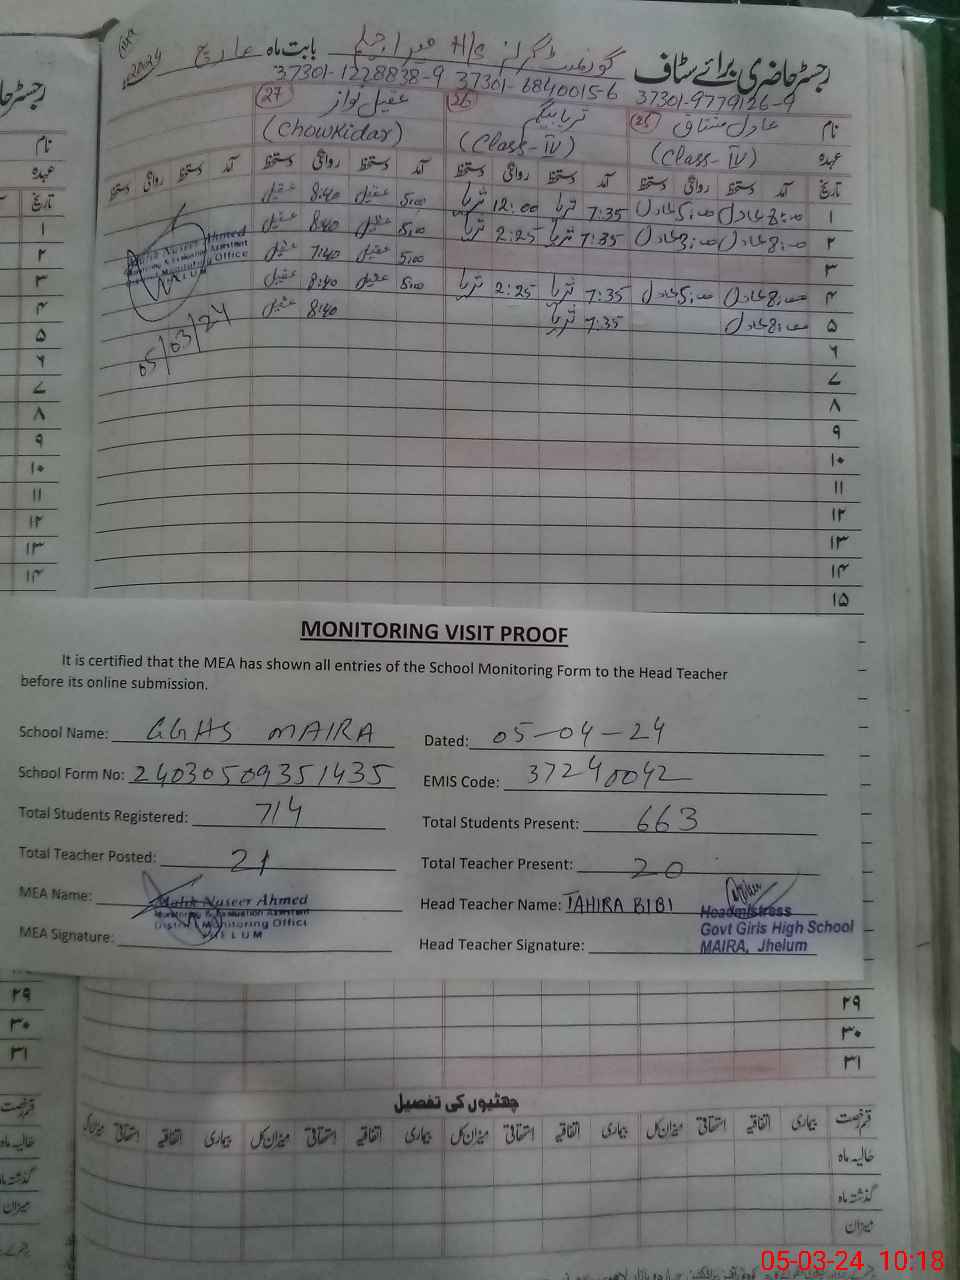 رجسٹر حاضری برائے سٹاف گورنمنٹ گرلز H/S میرا جہلم بابت ماہ مارچ 2024
37301-9779126-9 37301-6840015-6 37301-1228838-9
نام عادل مشتاق (25) ثریا بیگم (26) عقیل نواز (27)
عہدہ (Class-IV) (Class-IV) (Chowkidar)
تاریخ آمد دستخط روانگی دستخط آمد دستخط روانگی دستخط آمد دستخط روانگی دستخط آمد دستخط روانگی دستخط
۱ 8:00 عادل 5:00 عادل 7:35 ثریا 12:00 ثریا 5:00 عقیل 8:40 عقیل
۲ 8:00 عادل 3:00 عادل 7:35 ثریا 2:25 ثریا 5:00 عقیل 8:40 عقیل
۳ 5:00 عقیل 7:40 عقیل
۴ 8:00 عادل 5:00 عادل 7:35 ثریا 2:25 ثریا 5:00 عقیل 8:40 عقیل
۵ 8:00 عادل 7:35 ثریا 8:40 عقیل
Malik Naseer Ahmed
Monitoring & Evaluation Assistant
District Monitoring Office
JHELUM
05/03/24
۶
۷
۸
۹
۱۰
۱۱
۱۲
۱۳
۱۴
۱۵
MONITORING VISIT PROOF
It is certified that the MEA has shown all entries of the School Monitoring Form to the Head Teacher
before its online submission.
School Name: GGHS MAIRA Dated: 05-04-24
School Form No: 24030509351435 EMIS Code: 37240042
Total Students Registered: 714 Total Students Present: 663
Total Teacher Posted: 21 Total Teacher Present: 20
MEA Name: Malik Naseer Ahmed Head Teacher Name: TAHIRA BIBI
Monitoring & Evaluation Assistant
District Monitoring Office
JHELUM
Headmistress
Govt Girls High School
MAIRA, Jhelum
MEA Signature: Head Teacher Signature:
۲۹
۳۰
۳۱
چھٹیوں کی تفصیل
قسم رخصت بیماری اتفاقیہ استحقاقی میزان کل بیماری اتفاقیہ استحقاقی میزان کل بیماری اتفاقیہ استحقاقی میزان کل بیماری اتفاقیہ استحقاقی میزان کل
حالیہ ماہ
گذشتہ ماہ
میزان
05-03-24 10:18